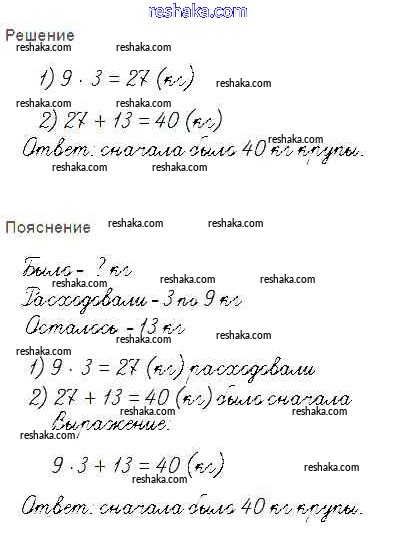 reshaka.com
Решение
reshaka.com reshaka.com
1) 9 · 3 = 27 (кг) reshaka.com
reshaka.com reshaka.com
2) 27 + 13 = 40 (кг)
reshaka.com
Ответ: сначала было 40 кг крупы.
reshaka.com reshaka.com
Пояснение reshaka.com reshaka.com
Было - ? кг
reshaka.com reshaka.com
Расходовали - 3 по 9 кг
Осталось - 13 кг
reshaka.com reshaka.com
reshaka.com
1) 9 · 3 = 27 (кг) расходовали
2) 27 + 13 = 40 (кг) было сначала
reshaka.com reshaka.com
Выпажение:
reshaka.com
9 · 3 + 13 = 40 (кг) reshaka.com
reshaka.com
Ответ: сначала было 40 кг крупы.